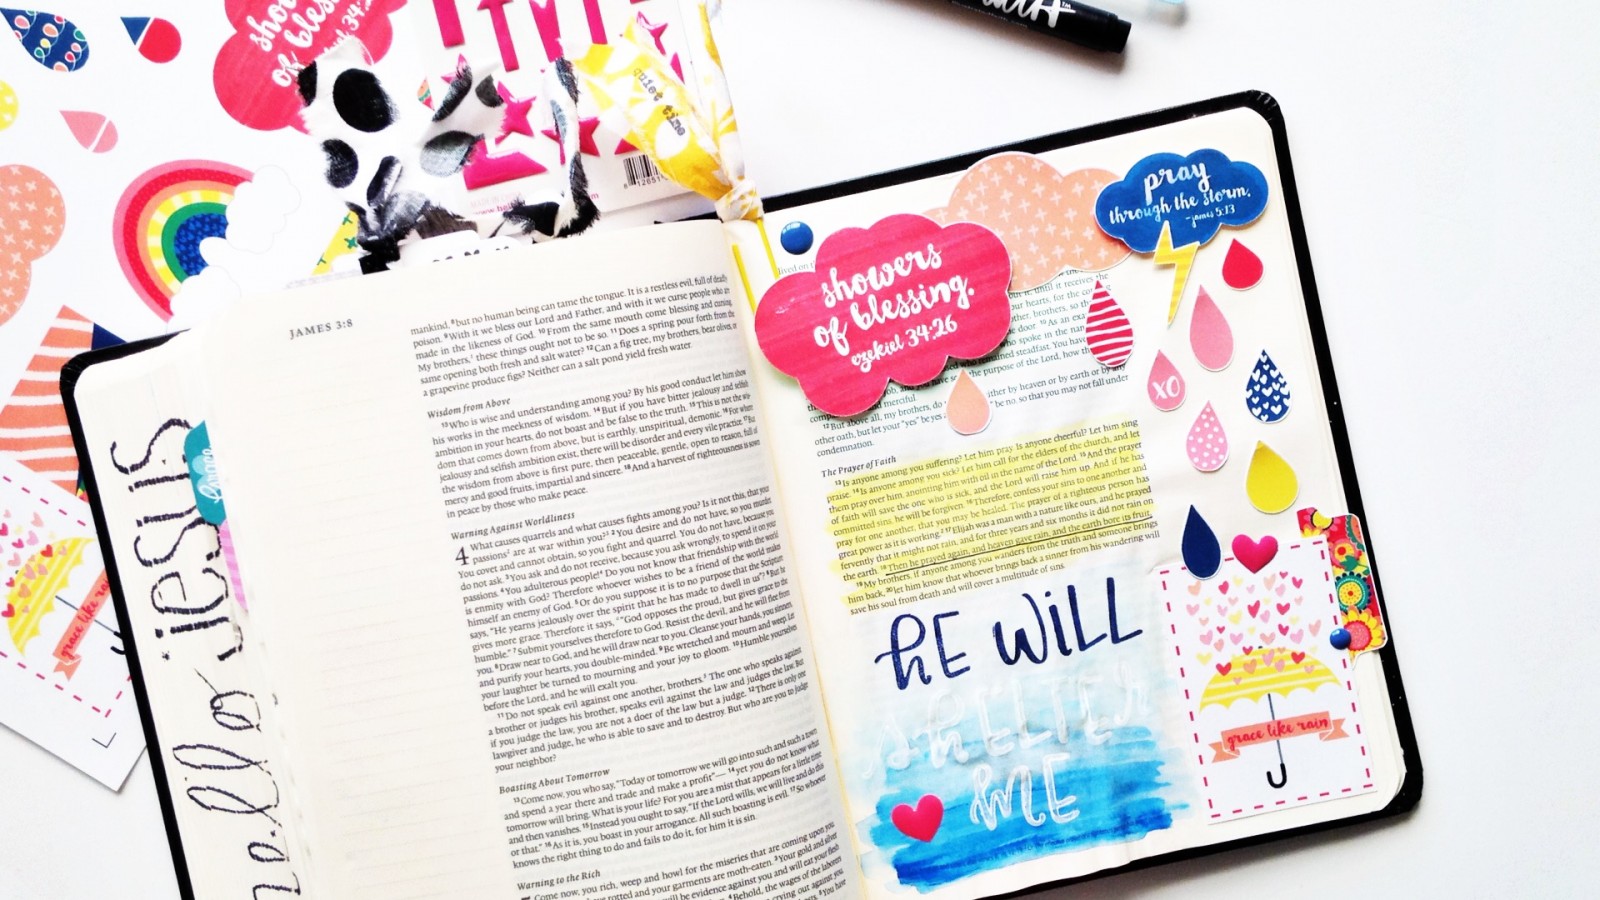 showers
of blessing.
quiet time
JAMES 3:8
mankind, ⁸but no human being can tame the tongue. It is a restless evil, full of deadly
poison. ⁹With it we bless our Lord and Father, and with it we curse people who are
made in the likeness of God. ¹⁰From the same mouth come blessing and cursing.
My brothers, these things ought not to be so. ¹¹Does a spring pour forth from the
same opening both fresh and salt water? ¹²Can a fig tree, my brothers, bear olives, or
a grapevine produce figs? Neither can a salt pond yield fresh water.
Wisdom from Above
¹³Who is wise and understanding among you? By his good conduct let him show
his works in the meekness of wisdom. ¹⁴But if you have bitter jealousy and selfish
ambition in your hearts, do not boast and be false to the truth. ¹⁵This is not the wis-
dom that comes down from above, but is earthly, unspiritual, demonic. ¹⁶For where
jealousy and selfish ambition exist, there will be disorder and every vile practice. ¹⁷But
the wisdom from above is first pure, then peaceable, gentle, open to reason, full of
mercy and good fruits, impartial and sincere. ¹⁸And a harvest of righteousness is sown
in peace by those who make peace.
Warning Against Worldliness
4 What causes quarrels and what causes fights among you? Is it not this, that your
passions are at war within you? ²You desire and do not have, so you murder.
You covet and cannot obtain, so you fight and quarrel. You do not have, because you
do not ask. ³You ask and do not receive, because you ask wrongly, to spend it on your
passions. ⁴You adulterous people! Do you not know that friendship with the world
is enmity with God? Therefore whoever wishes to be a friend of the world makes
himself an enemy of God. ⁵Or do you suppose it is to no purpose that the Scripture
says, "He yearns jealously over the spirit that he has made to dwell in us"? ⁶But he
gives more grace. Therefore it says, "God opposes the proud, but gives grace to the
humble." ⁷Submit yourselves therefore to God. Resist the devil, and he will flee from
you. ⁸Draw near to God, and he will draw near to you. Cleanse your hands, you sinners,
and purify your hearts, you double-minded. ⁹Be wretched and mourn and weep. Let
your laughter be turned to mourning and your joy to gloom. ¹⁰Humble yourselves
before the Lord, and he will exalt you.
¹¹Do not speak evil against one another, brothers. The one who speaks against
a brother or judges his brother, speaks evil against the law and judges the law. But
if you judge the law, you are not a doer of the law but a judge. ¹²There is only one
lawgiver and judge, he who is able to save and to destroy. But who are you to judge
your neighbor?
Boasting About Tomorrow
¹³Come now, you who say, "Today or tomorrow we will go into such and such a town
and spend a year there and trade and make a profit"— ¹⁴yet you do not know what
tomorrow will bring. What is your life? For you are a mist that appears for a little time
and then vanishes. ¹⁵Instead you ought to say, "If the Lord wills, we will live and do this
or that." ¹⁶As it is, you boast in your arrogance. All such boasting is evil. ¹⁷So whoever
knows the right thing to do and fails to do it, for him it is sin.
Warning to the Rich
Come now, you rich, weep and howl for the miseries that are coming upon
rotted and your garments are moth-eaten. ³Your gold and silver
will be evidence against you and will eat your flesh
⁴Behold, the wages of the laborers
hello jesus
grace
grace like rain
showers
of blessing.
ezekiel 34:26
pray
through the storm.
-james 5:13
xo
¹²But above all, my brothers, do
either by heaven or by earth or by
other oath, but let your "yes" be yes
be no, so that you may not fall under
condemnation.
The Prayer of Faith
¹³Is anyone among you suffering? Let him pray. Is anyone cheerful? Let him sing
praise. ¹⁴Is anyone among you sick? Let him call for the elders of the church, and let
them pray over him, anointing him with oil in the name of the Lord. ¹⁵And the prayer
of faith will save the one who is sick, and the Lord will raise him up. And if he has
committed sins, he will be forgiven. ¹⁶Therefore, confess your sins to one another and
pray for one another, that you may be healed. The prayer of a righteous person has
great power as it is working. ¹⁷Elijah was a man with a nature like ours, and he prayed
fervently that it might not rain, and for three years and six months it did not rain on
the earth. ¹⁸Then he prayed again, and heaven gave rain, and the earth bore its fruit.
¹⁹My brothers, if anyone among you wanders from the truth and someone brings
him back, ²⁰let him know that whoever brings back a sinner from his wandering will
save his soul from death and will cover a multitude of sins.
HE WILL
SHELTER
ME
grace like rain